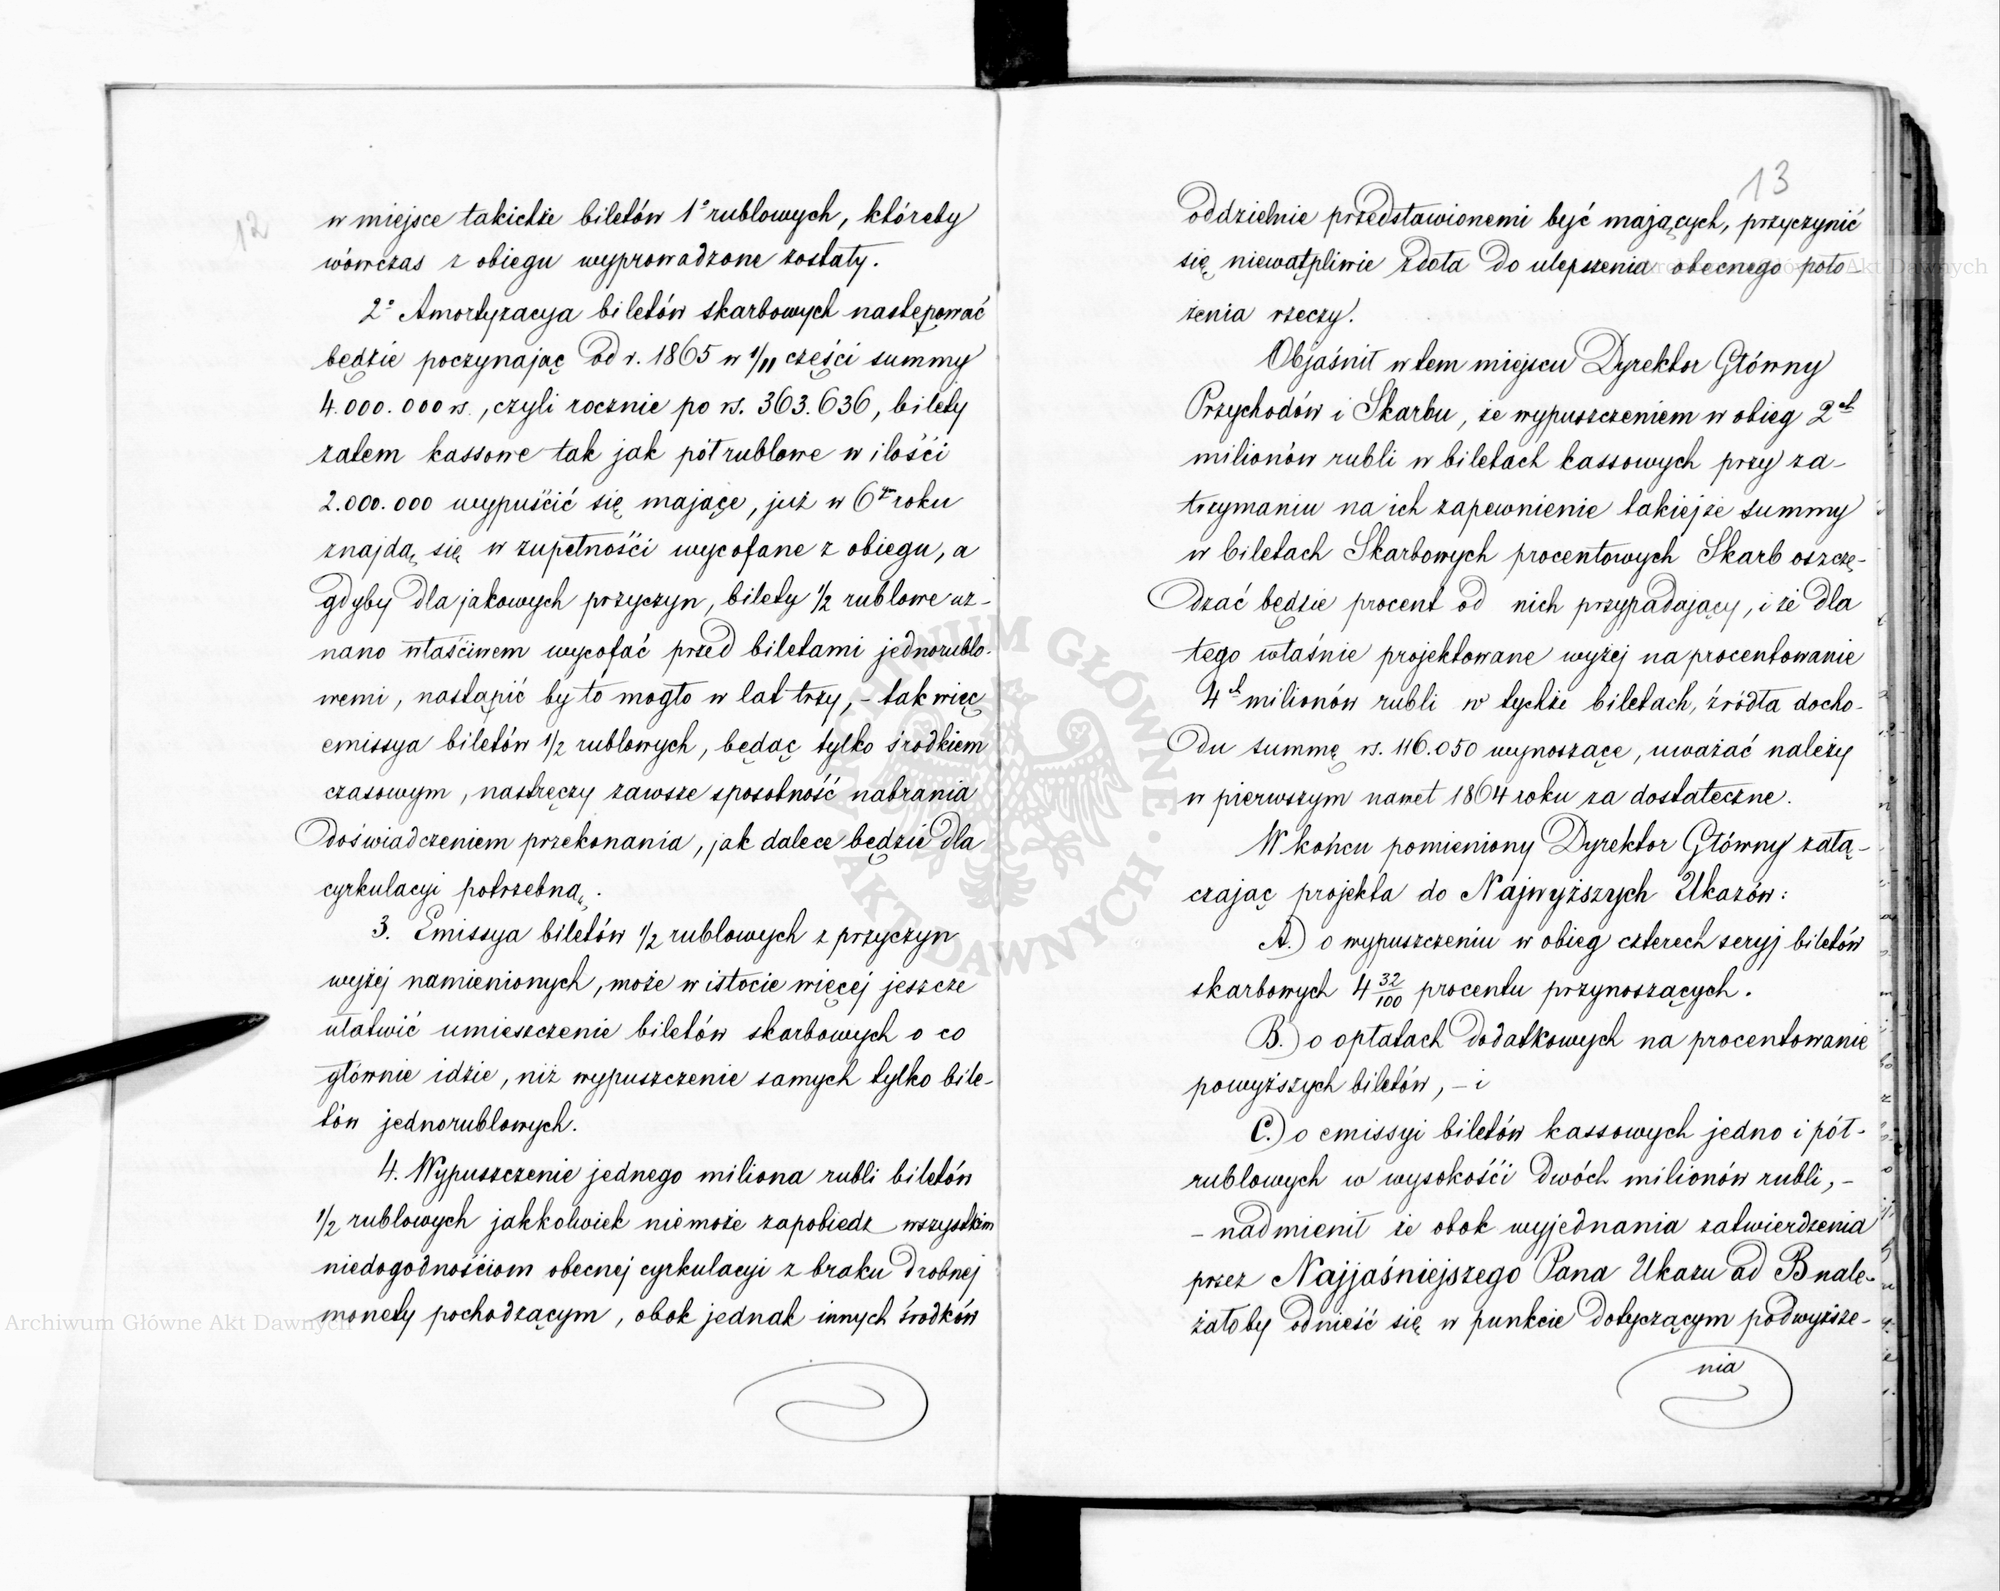 12
w miejsce takichże biletów 1° rublowych, któreby
wówczas z obiegu wyprowadzone zostały.
2° Amortyzacya biletów skarbowych następować
będzie poczynając od r. 1865 w 1/11 części summy
4.000.000 rs., czyli rocznie po rs. 363.636, bilety
zatem kassowe tak jak półrublowe w ilości
2.000.000 wypuścić się mające, już w 6ym roku
znajdą się w zupełności wycofane z obiegu, a
gdyby dla jakowych przyczyn, bilety 1/2 rublowe uz-
nano właściwem wycofać przed biletami jednorublo-
wemi, nastąpić by to mogło w lat trzy, - tak więc
emissya biletów 1/2 rublowych, będąc tylko środkiem
czasowym, nastręczy zawsze sposobność nabrania
doświadczeniem przekonania, jak dalece będzie dla
cyrkulacyi potrzebną.
3. Emissya biletów 1/2 rublowych z przyczyn
wyżej namienionych, może w istocie więcej jeszcze
ułatwić umieszczenie biletów skarbowych o co
głównie idzie, niż wypuszczenie samych tylko bile-
tów jednorublowych.
4. Wypuszczenie jednego miliona rubli biletów
1/2 rublowych jakkolwiek niemoże zapobiedz wszystkim
niedogodnościom obecnej cyrkulacyi z braku drobnej
monety pochodzącym, obok jednak innych środków
13
oddzielnie przedstawionemi być mających, przyczynić
się niewątpliwie zdoła do ulepszenia obecnego poło-
żenia rzeczy.
Objaśnił w tem miejscu Dyrektor Główny
Przychodów i Skarbu, że wypuszczeniem w obieg 2ch
milionów rubli w biletach kassowych przy za-
trzymaniu na ich zapewnienie takiejże summy
w biletach Skarbowych procentowych Skarb oszczę-
dzać będzie procent od nich przypadający, i że dla
tego właśnie projektowane wyżej na procentowanie
4ch milionów rubli w tychże biletach, źródła docho-
du summę rs. 116.050 wynoszące, uważać należy
w pierwszym nawet 1864 roku za dostateczne.
W końcu pomieniony Dyrektor Główny załą-
czając projekta do Najwyższych Ukazów:
A.) o wypuszczeniu w obieg czterech seryj biletów
skarbowych 4 32/100 procentu przynoszących.
B.) o opłatach dodatkowych na procentowanie
powyższych biletów, - i
C.) o emissyi biletów kassowych jedno i pół-
rublowych w wysokości dwóch milionów rubli, -
- nadmienił że obok wyjednania zatwierdzenia
przez Najjaśniejszego Pana Ukazu ad B nale-
żałoby odnieść się w punkcie dotyczącym podwyższe-
nia
Archiwum Główne Akt Dawnych